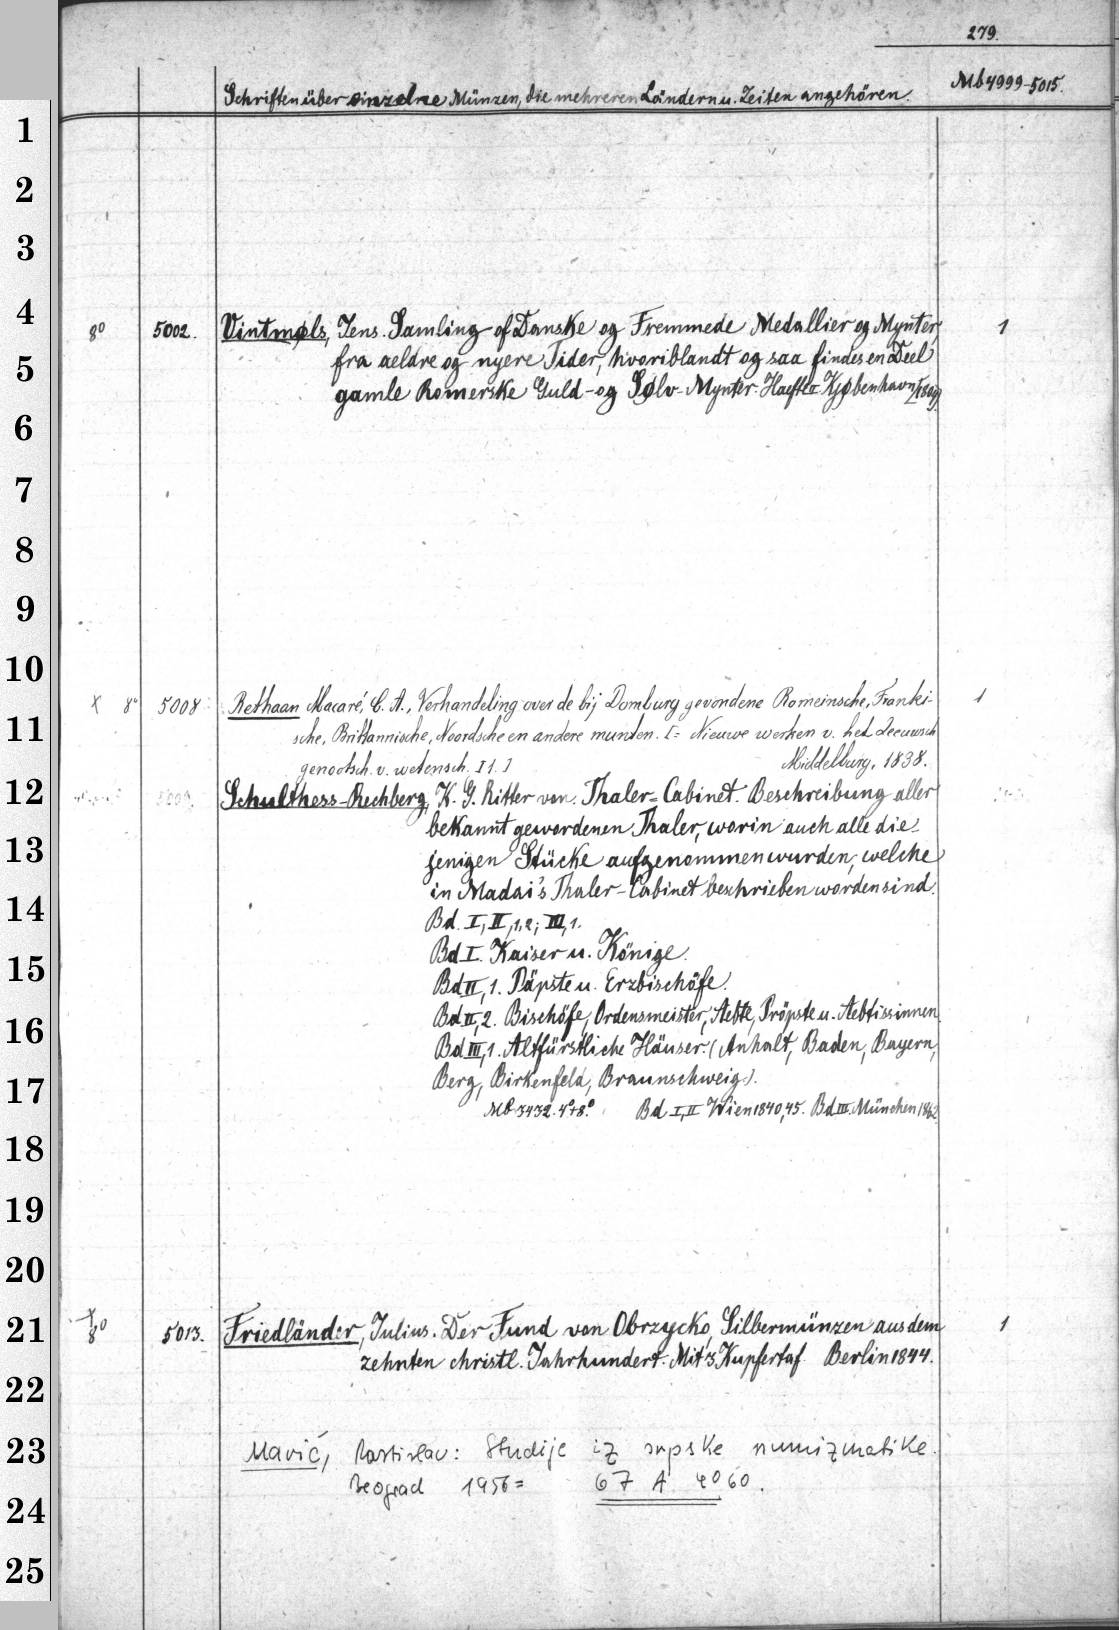 279.
Schriften über einzelne Münzen, die mehreren Ländern u. Zeiten angehören. Mb 4999-5015.
8° 5002. Vintmøls, Jens. Samling of Danske og Fremmede Medallier og Mynter, 1
fra aeldre og nyere Tider, hvoriblandt og saa findes en Deel
gamle Romerske Guld- og Sølv-Mynter. Kjøbenhavn
x 8° 5008 Rethaan Macaré, C. A., Verhandeling over de bij Domburg gevondene Romeinsche, Franki- 1
sche, Brittannische, Noordsche en andere munten. [= Nieuwe werken v. het Zeeuwsch
genootsch. v. wetensch. I 1.] Middelburg, 1838.
5009. Schulthess-Rechberg, K. G. Ritter von. Thaler-Cabinet. Beschreibung aller
bekannt gewordenen Thaler, worin auch alle die-
jenigen Stücke aufgenommen wurden, welche
in Madai's Thaler-Cabinet beschrieben worden sind.
Bd. I, II,1,2; III,1.
Bd I. Kaiser u. Könige.
Bd II, 1. Päpste u. Erzbischöfe.
Bd II, 2. Bischöfe, Ordensmeister, Aebte, Pröpste u. Aebtissinnen.
Bd III, 1. Altfürstliche Häuser. (Anhalt, Baden, Bayern,
Berg, Birkenfeld, Braunschweig).
Mb 3432. 4°+8.° Bd I, II Wien 1840,45. Bd III. München 1862.
x
8° 5013. Friedländer, Julius. Der Fund von Obrzycko, Silbermünzen aus dem 1
zehnten christl. Jahrhundert. Mit 3 Kupfertaf. Berlin 1844.
Marić, Rastislav: Studije iz srpske numizmatike.
Beograd 1956 = 67 A 4060.
1
2
3
4
5
6
7
8
9
10
11
12
13
14
15
16
17
18
19
20
21
22
23
24
25